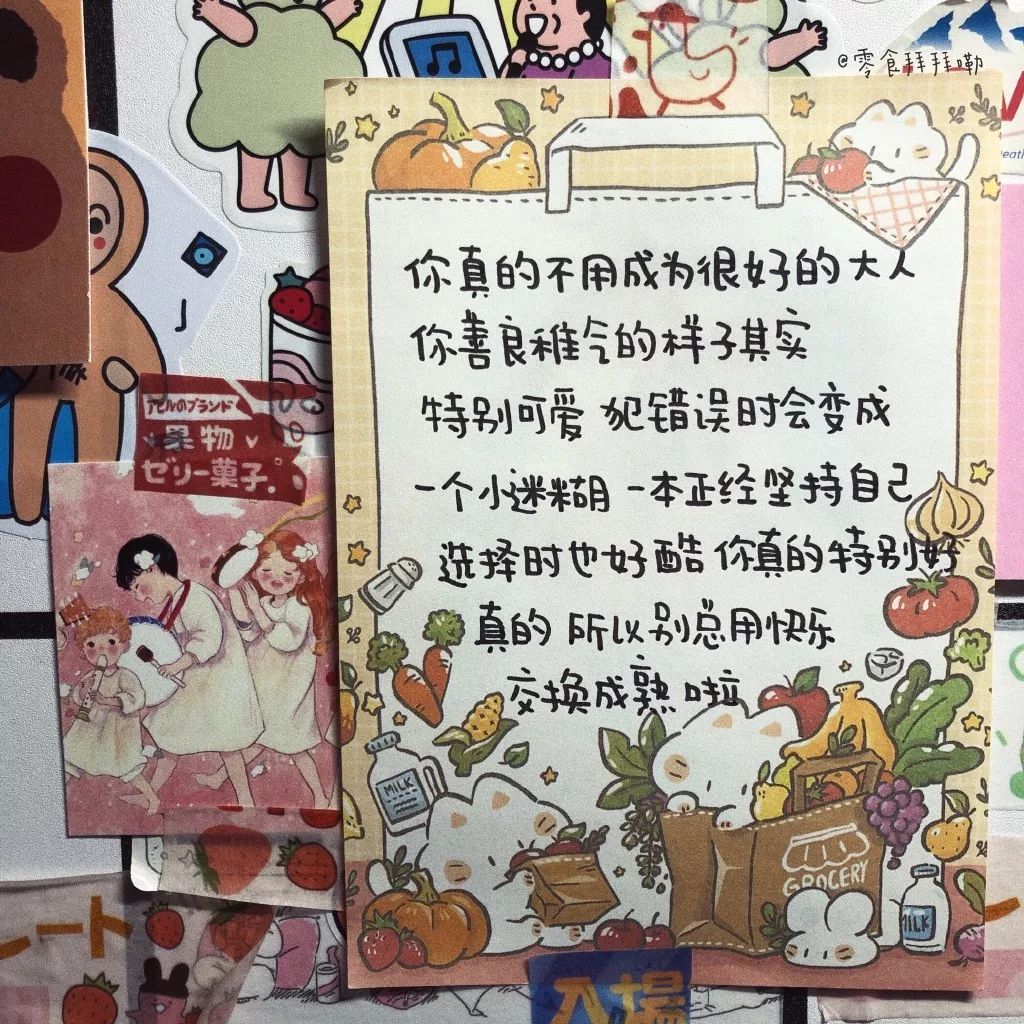 @零食拜拜嘞
你真的不用成为很好的大人
你善良稚气的样子其实
特别可爱 犯错误时会变成
一个小迷糊 一本正经坚持自己
选择时也好酷 你真的特别好
真的 所以别总用快乐
交换成熟啦
アヒルのブランド
果物
ゼリー菓子.
MILK
GROCERY
MILK
ート
入場